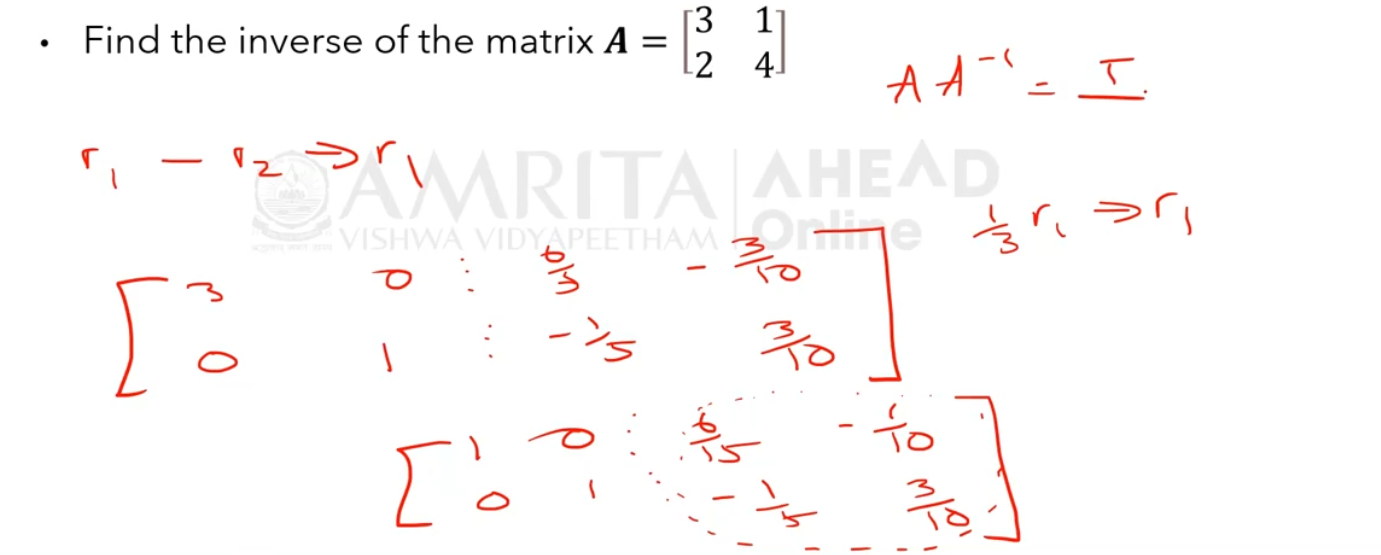 • Find the inverse of the matrix A = [3 1
2 4]
A A⁻¹ = I
r₁ − r₂ ⇒ r₁
AMRITA AHEAD
VISHWA VIDYAPEETHAM Online
1/3 r₁ ⇒ r₁
[3 0 ⋮ 6/5 -3/10
0 1 ⋮ -1/5 3/10]
[1 0 ⋮ 6/15 -1/10
0 1 ⋮ -1/5 3/10]